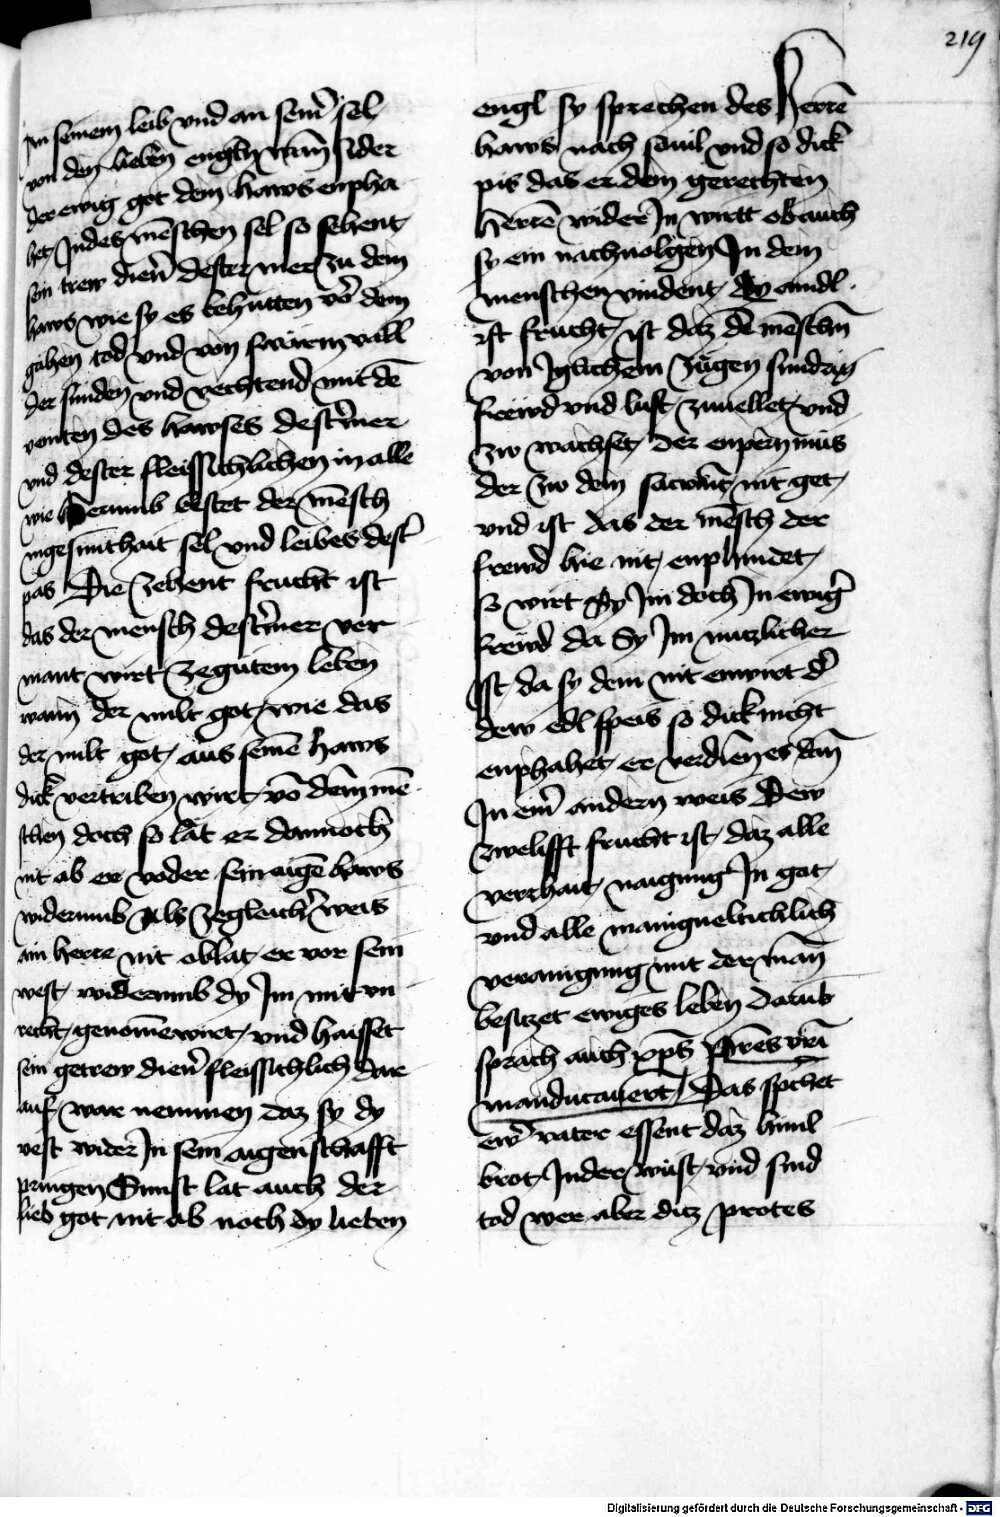 219
Im seinem leib vnd an seiñ sel
von den lieben engeln wañ sider
der ewig got dem haws enpha
het Jn des mēschen sel so sehent
sein trew dieñ dester mer zu dem
haws wie sy es behutten vō dem
gahen tod vnd von swārm vall
der sunden vnd vechtend mit dē
veinten des hawses dest mer
vnd dester fleissichlichen in alle
wie herumb bestet der mēsch
ingesunthait sel vnd leibes dest
pas Die zehent frucht ist
das der mensch dest mer ver
mant wirt ze gutem leben
wann der milt got wie das
der milt got aus seinē haws
dikch vertriben wirt vō dem mē
schen doch so lāt er dannoch
nit ab er voder sein aigē haws
widerumb Als ze gleicher weis
ain herre nit oblat er vor sein
vest widerumb dy Jm mit vn
recht genomē wirt vnd haisset
sein getrew dieñ fleissichlich dar
auf war nemmen daz sy dy
vest wider Jn sein aigenschafft
pringen Sunst lat auch der
lieb got nit ab noch dy lieben
engl sy sprechen des Herrē
haws nach souil vnd so dick
pis das er dem gerechten
herrē wider Jn wirtt ob auch
sy ein nachuolgen Jn dem
menschen vindent Dy aindl
ift frucht ist daz dē mēschñ
von Jglichem zügen sundrig
frewd vnd lust zuuellet vnd
zw wachset der enpern mus
der zw dem sacramt nit get
vnd ist das der mēsch der
frewd hie nit enphindet
so wirt Sy Jm doch Jn ewig
frewd da Sy Jm nutzlicher
Jst da sy dem nit enwirt d
dew edl speis so dick nicht
enphahet er verdien es dañ
Jn eiñ andern weis Dew
zwelifft frucht ist daz alle
naigung Jn got
vnd alle manigueltichlich
verainigung mit der man
besitzet ewiges leben Darub
sprach auch xp̄s Pr̄es vr̄i
manducauert Das sp̄chet
ewr vater essent daz himl
brot Jn der wüst vnd sind
tod wer aber ditz protes
Digitalisierung gefördert durch die Deutsche Forschungsgemeinschaft - DFG